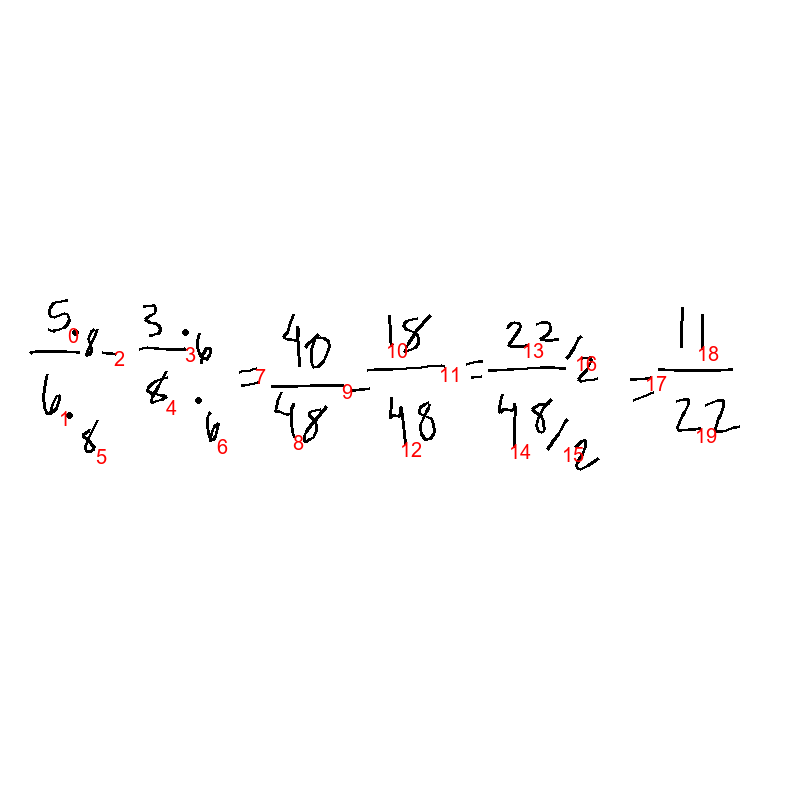 \frac{5 \cdot 8}{6 \cdot 8} - \frac{3 \cdot 6}{8 \cdot 6} = \frac{40}{48} - \frac{18}{48} = \frac{22/2}{48/2} = \frac{11}{22}
0 1 2 3 4 5 6 7 8 9 10 11 12 13 14 15 16 17 18 19